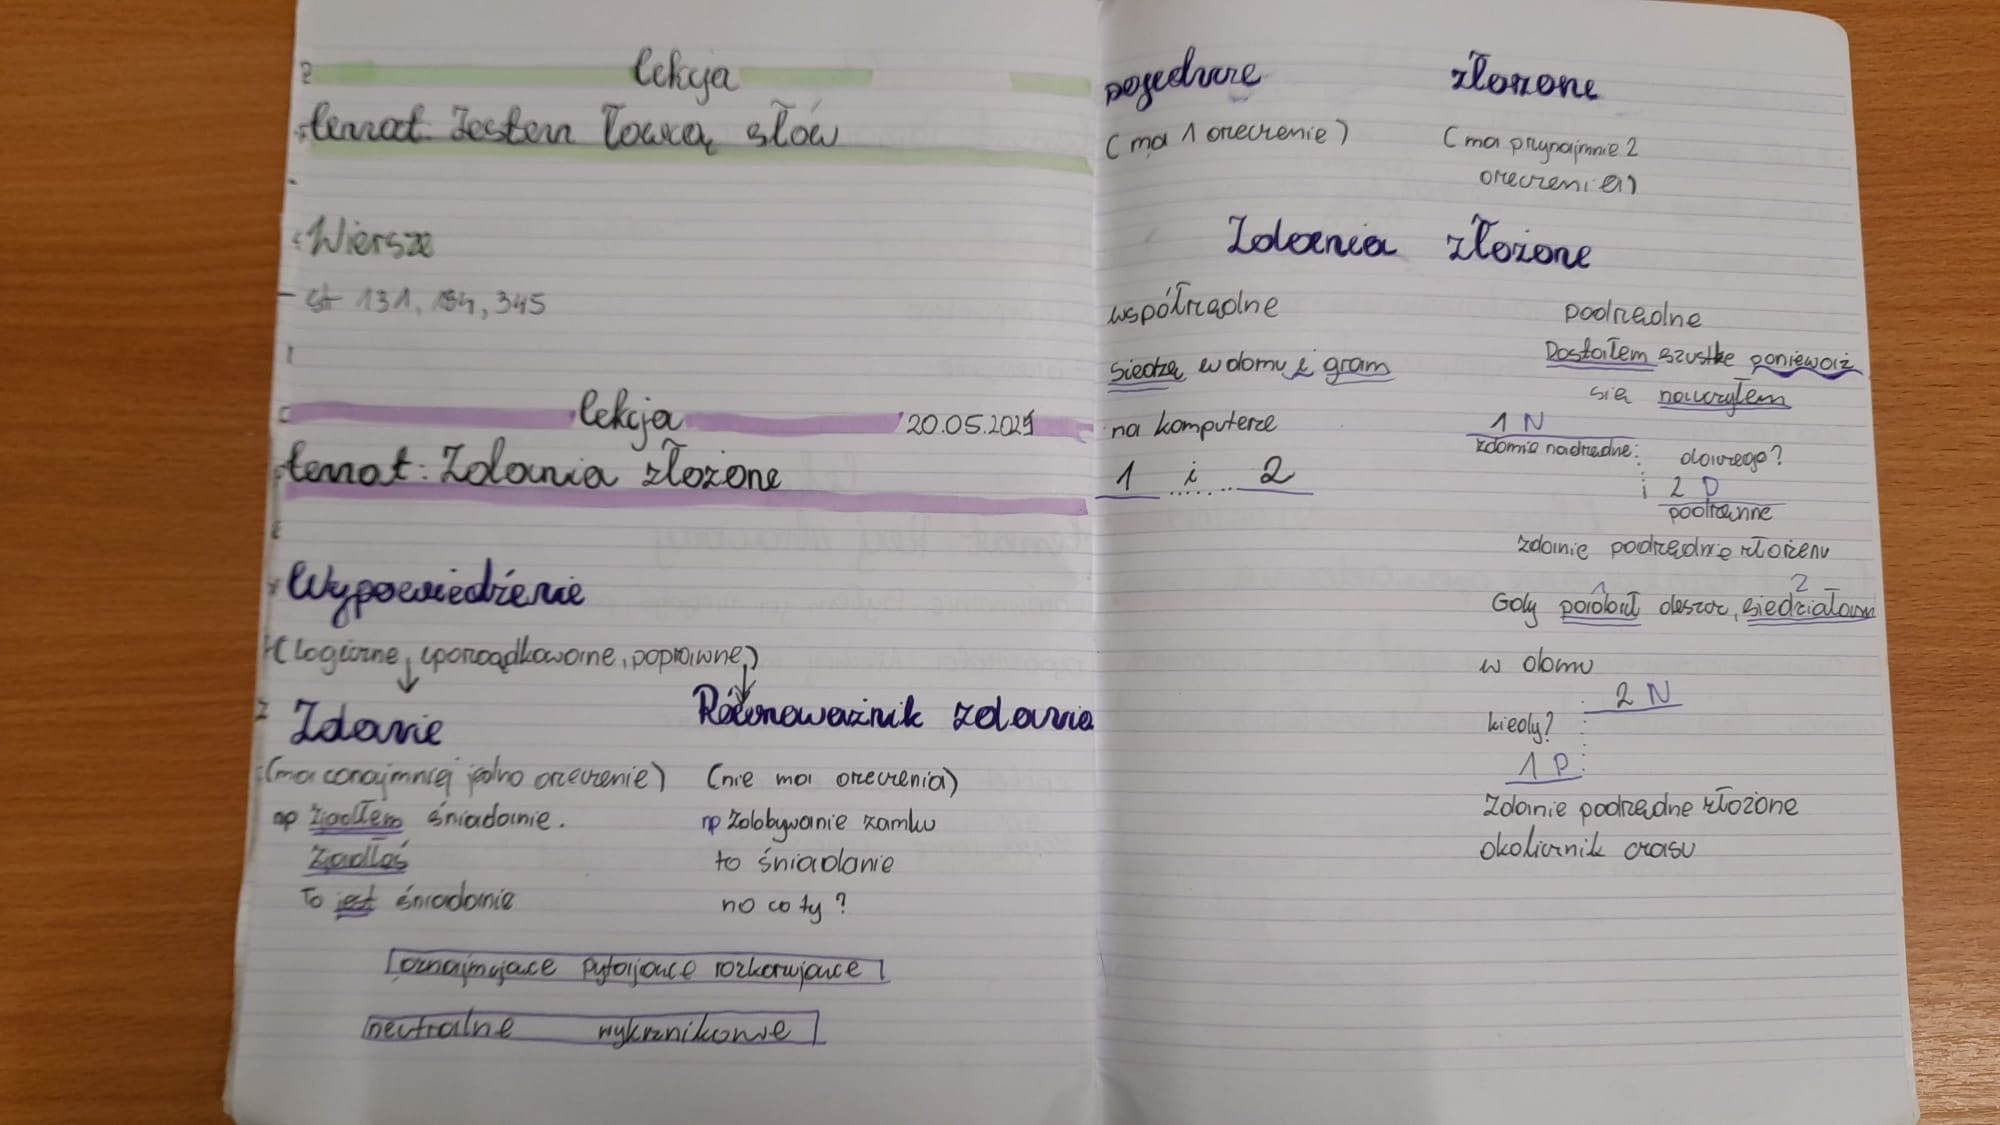 Lekcja
temat: Jestem łowcą słów
Wiersze
str 131, 184, 345
Lekcja 20.05.2025
temat: Zdania złożone
Wypowiedzenie
(logiczne, uporządkowane, poprawne)
Zdanie Równoważnik zdania
(ma conajmniej jedno orzeczenie) (nie ma orzeczenia)
np Zjadłem śniadanie. np Zdobywanie zamku
Zjadłaś to śniadanie
To jest śniadanie no co ty?
oznajmujące pytające rozkazujące
neutralne wykrznikowe
pojedncze złozone
(ma 1 orzeczenie) (ma przynajmnie 2
orzeczenia)
Zdania złożone
współrzędne podrzędne
Siedzę w domu i gram Dostałem szustke ponieważ
na komputerze się nauczyłem
1 i 2 1 N
zdanie nadrzędne: dlaczego?
2 P
podrzenne
zdanie podrzędnie złożenu
1 2
Gdy padał deszcz, siedziałam
w domu
2 N
kiedy?
1 P
Zdanie podrzędne złożone
okolicznik czasu